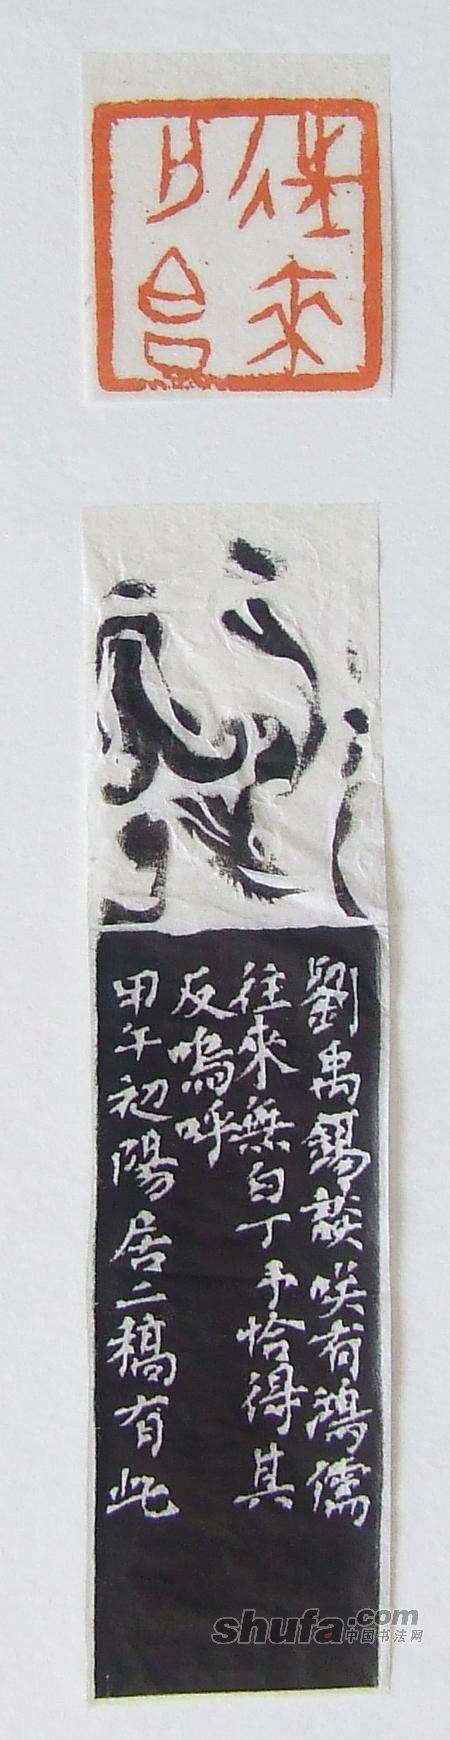 劉禹錫談咲有鴻儒
往來無白丁予恰得其
反嗚呼
甲午初陽居二稿有此
shufa.com
中国书法网